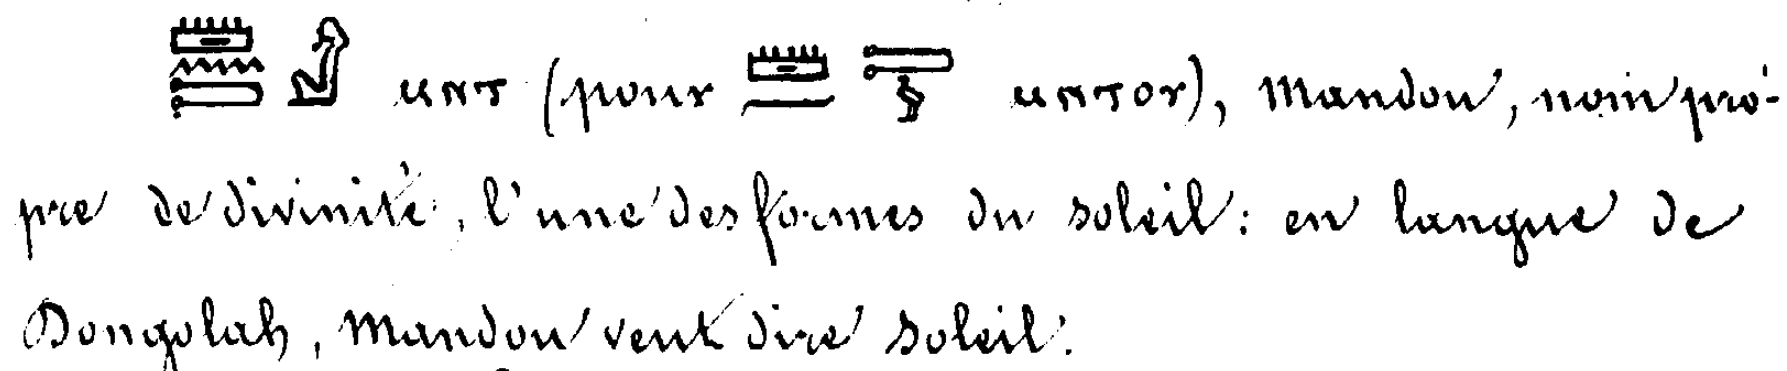 𓏠𓈖𓍿𓀭 ⲙⲛⲧ (pour 𓏠𓈖𓍿𓅱 ⲙⲛⲧⲟⲩ), Mandou, nom pro-
pre de divinité, l'une des formes du soleil: en langue de
Dongolah, Mandou veut dire soleil.